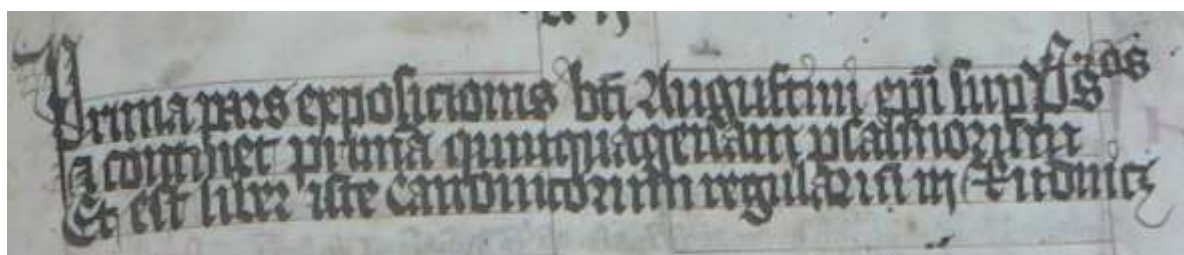 Prima pars exposicionis bti Augustini epi sup ps̄os
q continet primā quinquagenam psalmorum
Et est liber iste Canonicorum regulariū in